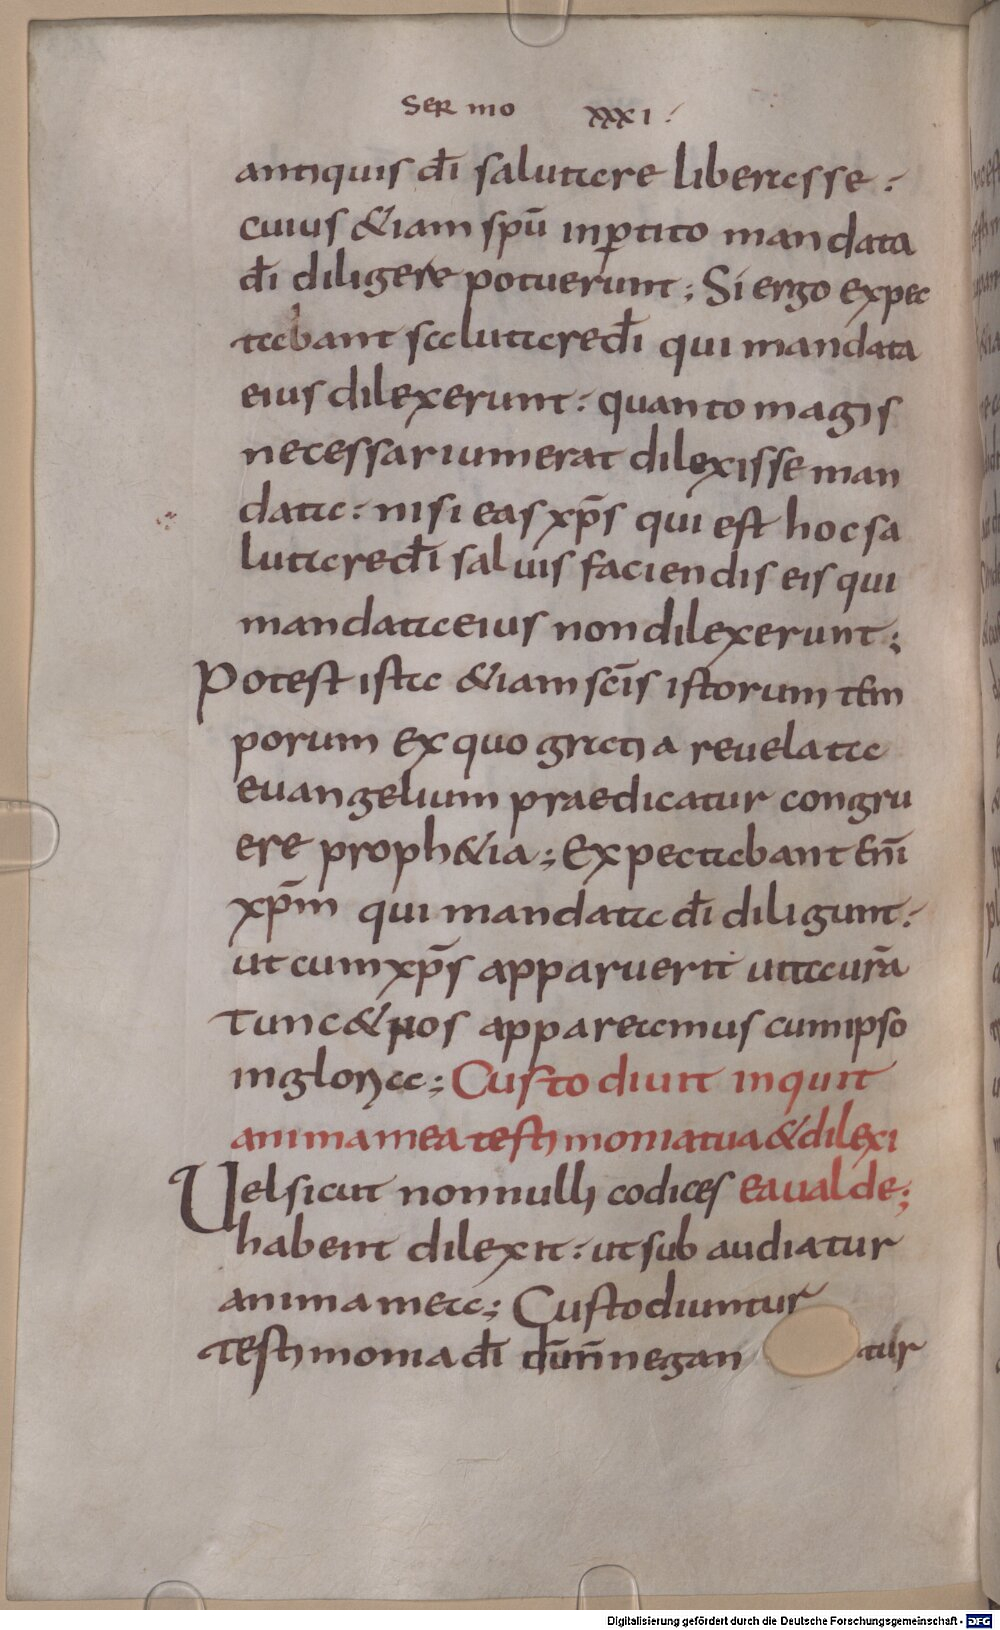 Sermo xxxi.
antiquis dī salutare liberasse.
cuius &iam spū inptito mandata
dī diligere potuerunt; Si ergo expec
tabant salutaredī qui mandata
eius dilexerunt. quanto magis
necessarium erat dilexisse man
data. nisi eas xp̄s qui est hoc sa
lutaredī saluis faciendis eis qui
mandata eius non dilexerunt;
Potest ista &iam scīs istorum tem
porum ex quo gratia reuelata
euangelium praedicatur congru
ere proph&ia; Expectabant enī
xp̄m qui mandata dī diligunt.
ut cum xp̄s apparuerit uita
Tunc & nos apparemus cum ipso
in gloria; Custodiuit inquit
anima mea testimonia tua & dilexi
Uel sicut nonnulli codices ea ualde;
habent dilexit. ut sub audiatur
anima mea; Custodiuntur
Testimonia dī dūm̄ negan tur
Digitalisierung gefördert durch die Deutsche Forschungsgemeinschaft - DFG